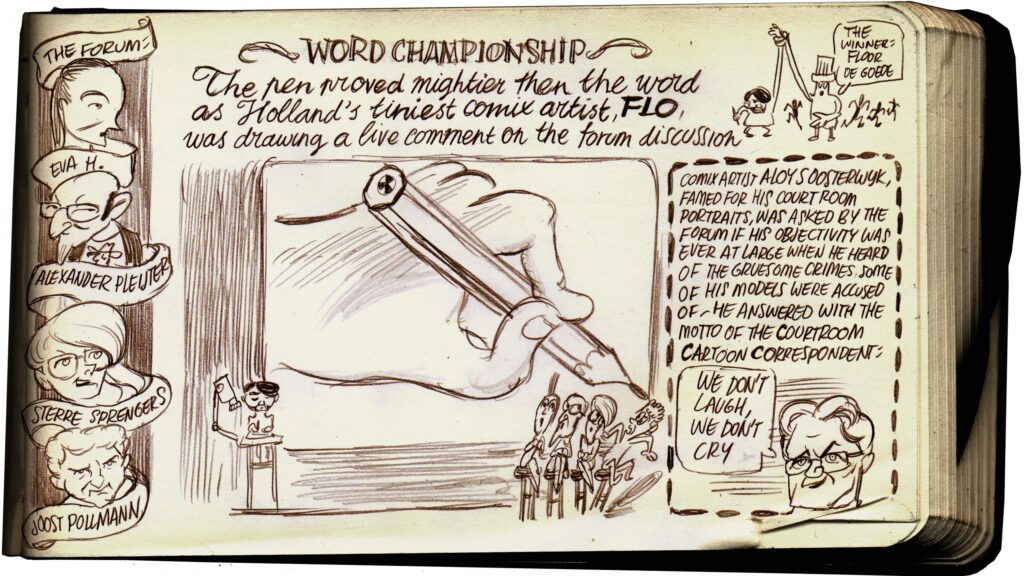 THE FORUM:
EVA H.
ALEXANDER PLEUTER
STERRE SPRENGERS
JOOST POLLMANN
WORD CHAMPIONSHIP
The pen proved mightier then the word
as Holland's tiniest comix artist, FLO,
was drawing a live comment on the forum discussion
THE
WINNER:
FLOOR
DE GOEDE
COMIX ARTIST ALOYS OOSTERWYK,
FAMED FOR HIS COURTROOM
PORTRAITS, WAS ASKED BY THE
FORUM IF HIS OBJECTIVITY WAS
EVER AT LARGE WHEN HE HEARD
OF THE GRUESOME CRIMES, SOME
OF HIS MODELS WERE ACCUSED
OF ~ HE ANSWERED WITH THE
MOTTO OF THE COURTROOM
CARTOON CORRESPONDENT:
WE DON'T
LAUGH,
WE DON'T
CRY